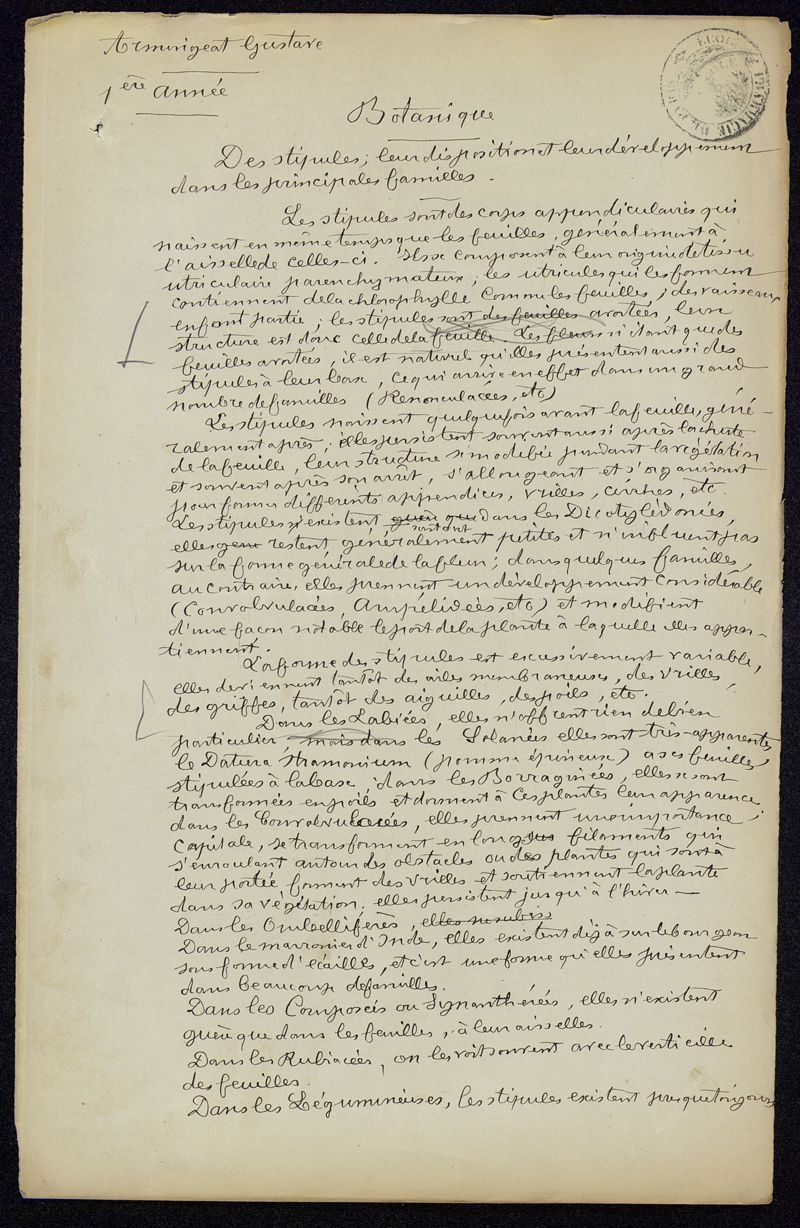 Gustave
1ère année
ECOLE PHARMACIE DE
Botanique
Des stipules ; leur disposition et leur développement
dans les principales familles.
Les stipules sont des corps appendiculaires qui
naissent en même temps que les feuilles, généralement à
l'aisselle de celles-ci. Ils se composent à leur origine de tissu
utriculaire parenchymateux ; les utricules qui les forment
contiennent de la chlorophylle comme les feuilles ; des vaisseaux
en font partie ; les stipules sont des feuilles avortées, leur
structure est donc celle de la feuille. Les fleurs n'étant que des
feuilles avortées, il est naturel qu'elles présentent aussi des
stipules à leur base, ce qui arrive en effet dans un grand
nombre de familles (Renonculacées, etc)
Les stipules naissent quelquefois avant la feuille, géné-
ralement après ; elles persistent souvent aussi après la chute
de la feuille, leur structure se modifie pendant la végétation
et souvent après son arrêt, s'allongeant et s'organisant
pour former différents appendices, vrilles, cirrhes, etc.
Les stipules n'existent guère que dans les Dicotylédonées,
elles restent généralement petites et n'influent pas
sur la forme générale de la fleur ; dans quelques familles,
au contraire, elles prennent un développement considérable
(Convolvulacées, Ampélidées, etc) et modifient
d'une façon notable le port de la plante à laquelle elles appar-
tiennent.
La forme des stipules est excessivement variable,
elles deviennent tantôt des ailes membraneuses, des vrilles,
des griffes, tantôt des aiguilles, des poils, etc.
Dans les Labiées, elles n'offrent rien de bien
particulier, mais dans les Solanées elles sont très-apparentes
le Datura stramonium (pomme épineuse) a ses feuilles
stipulées à la base, dans les Borraginées, elles se sont
transformées en poils et donnent à ces plantes leur apparence ;
dans les Convolvulacées, elles prennent une importance
capitale, se transforment en longs filaments qui
s'enroulant autour des obstacles ou des plantes qui sont à
leur portée forment des vrilles et soutiennent la plante
dans sa végétation. elles persistent jusqu'à l'hiver —
Dans les Ombellifères, elles
Dans le marronier d'Inde, elles existent déjà sur le bourgeon
sous forme d'écailles, et c'est une forme qu'elles présentent
dans beaucoup de familles.
Dans les Composées ou Synanthérées, elles n'existent
guère que dans les feuilles, à leur aisselles.
Dans les Rubiacées, on les voit souvent avec le verticille
des feuilles.
Dans les Légumineuses, les stipules existent presque toujours